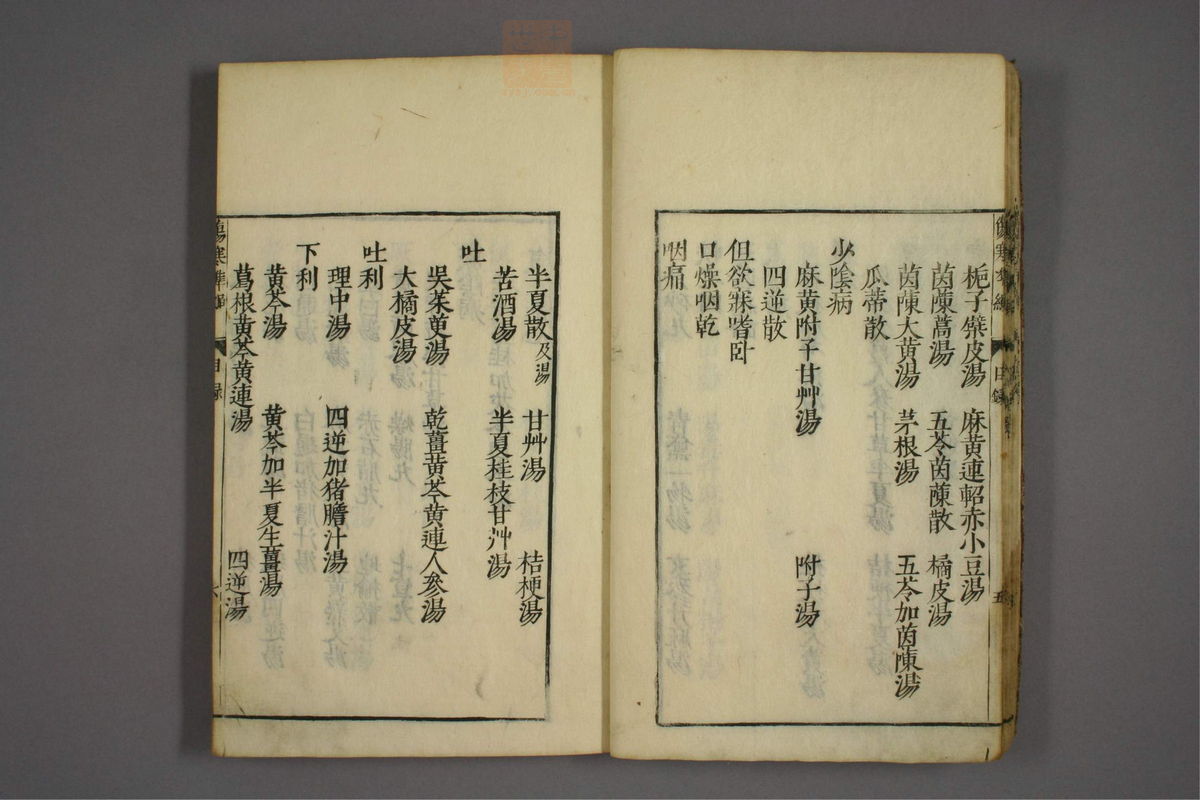 梔子糵皮湯　麻黃連軺赤小豆湯
茵蔯蒿湯　五苓茵蔯散　橘皮湯
茵蔯大黃湯　茅根湯　五苓加茵蔯湯
瓜蒂散
少陰病
麻黃附子甘艸湯　附子湯
四逆散
但欲寐嗜卧
口燥咽乾
咽痛
半夏散及湯　甘艸湯　桔梗湯
苦酒湯　半夏桂枝甘艸湯
吐
吳茱萸湯　乾薑黃芩黃連人參湯
大橘皮湯
吐利
理中湯　四逆加猪膽汁湯
下利
黃芩湯　黃芩加半夏生薑湯
葛根黃芩黃連湯　四逆湯
傷寒　目錄